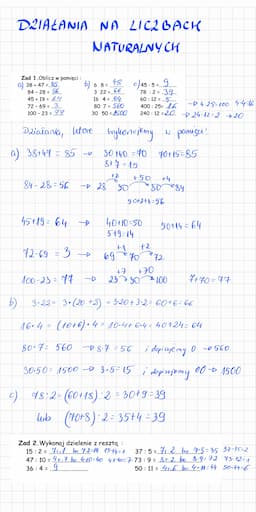 DZIAŁANIA NA LICZBACH
NATURALNYCH
Zad 1. Oblicz w pamięci:
a) 38 + 47 = 85 b) 6 · 8 = 48 c) 45 : 5 = 9
84 - 28 = 56 3 · 22 = 66 78 : 2 = 39
45 + 19 = 64 16 · 4 = 64 60 : 12 = 5
72 - 69 = 3 80 · 7 = 560 400 : 25 = 16 → 4·25=100 4·4=16
100 - 23 = 77 30 · 50 = 1500 240 : 12 = 20 → 24:12=2 → 20
Działania, które wykonujemy w pamięci:
a) 38+47 = 85 → 30+40=70 70+15=85
8+7=15
84-28=56 → 28 +2 30 +50 80 +4 84
50+2+4=56
45+19=64 → 40+10=50 50+14=64
5+9=14
72-69=3 → 69 +1 70 +2 72
100-23=77 → 23 +7 30 +70 100 7+70=77
b) 3·22= 3·(20+2)= 3·20+3·2= 60+6=66
16·4= (10+6)·4= 10·4+6·4= 40+24=64
80·7= 560 → 8·7=56 i dopisujemy 0 → 560
30·50=1500 → 3·5=15 i dopisujemy 00 → 1500
c) 78:2=(60+18):2=30+9=39
lub (70+8):2=35+4=39
Zad 2. Wykonaj dzielenie z resztą:
15 : 2 = 7 r. 1 bo 7·2=14 15-14=1 37 : 5 = 7 r. 2 bo 7·5=35 37-35=2
47 : 10 = 4 r. 7 bo 4·10=40 73 : 9 =
36 : 4 = 9 50 : 11 = 4 r. 6 bo 4·11=44 50-44=6